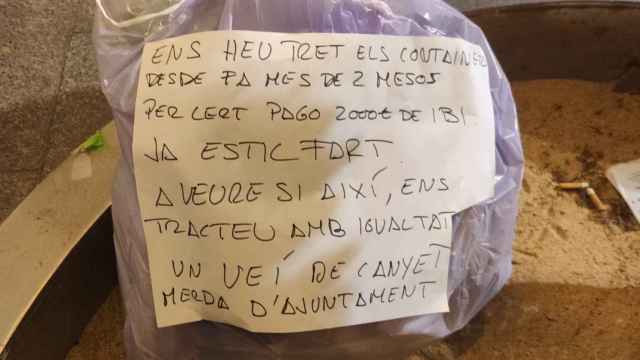 ENS HEU TRET ELS CONTAINER
DESDE FA MES DE 2 MESOS
PER CERT PAGO 2000€ DE IBI
JA ESTIC FART
A VEURE SI AIXÍ, ENS
TRACTEU AMB IGUALTAT
UN VEÍ DE CANYET
MERDA D'AJUNTAMENT